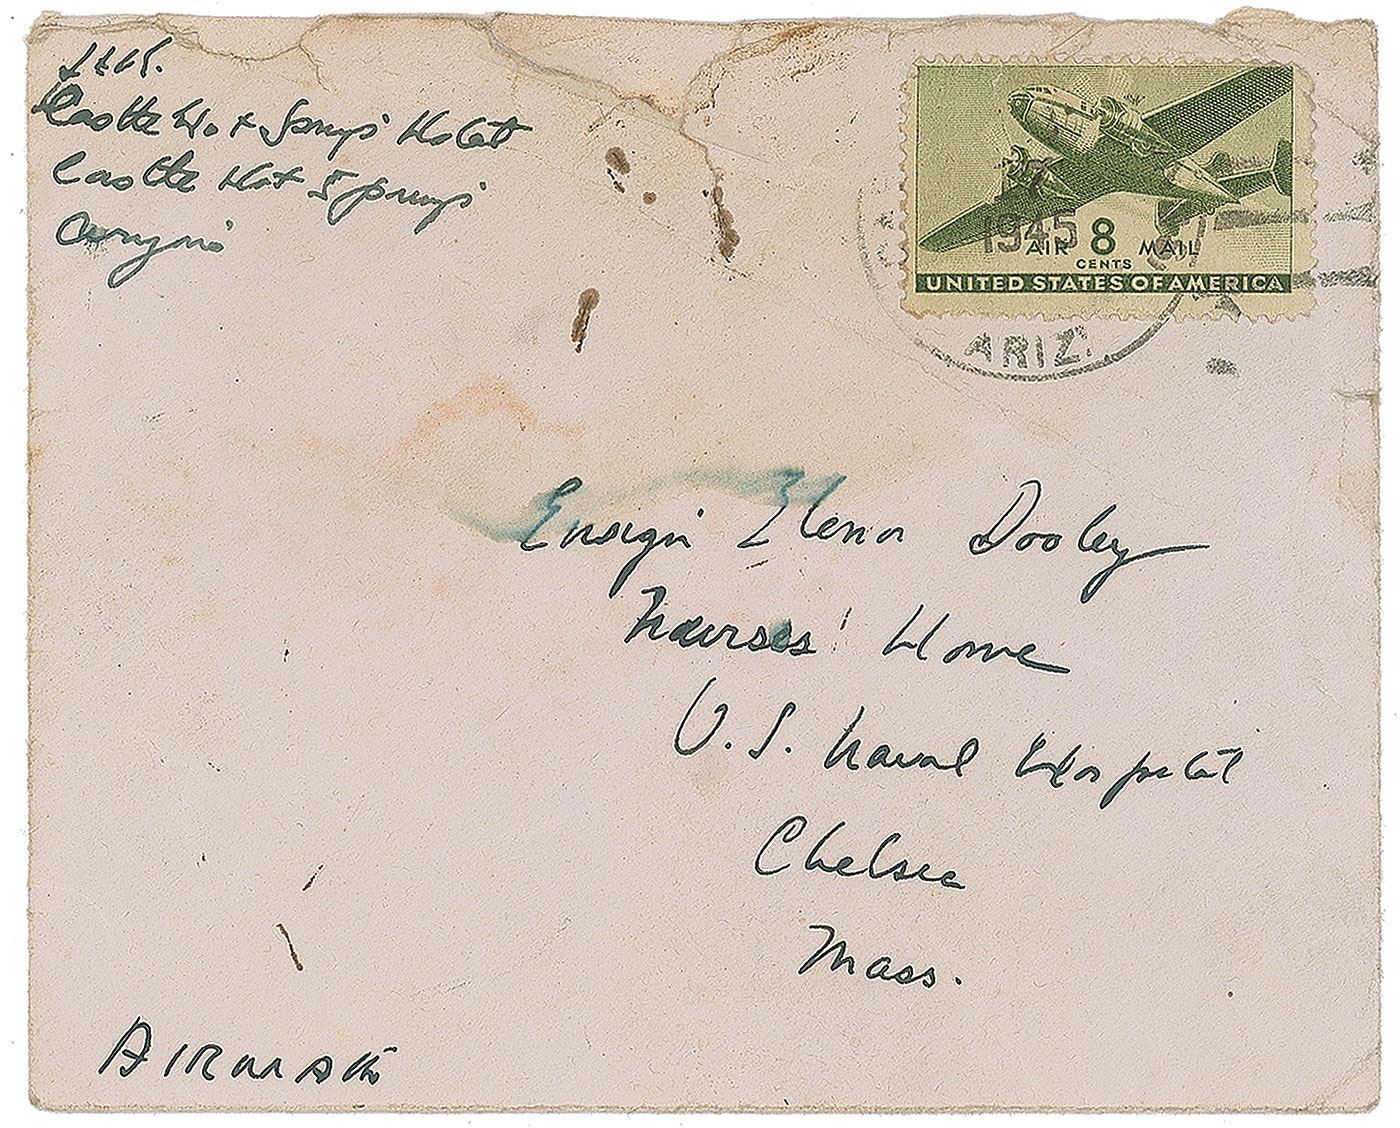 Castle Hot Springs Hotel
Castle Hot Springs
Arizona
1945
AIR 8 MAIL
CENTS
UNITED STATES OF AMERICA
ARIZ.
Ensign Elenor Dooley
Nurses' Home
U.S. Naval Hospital
Chelsea
Mass.
AIRMAIL